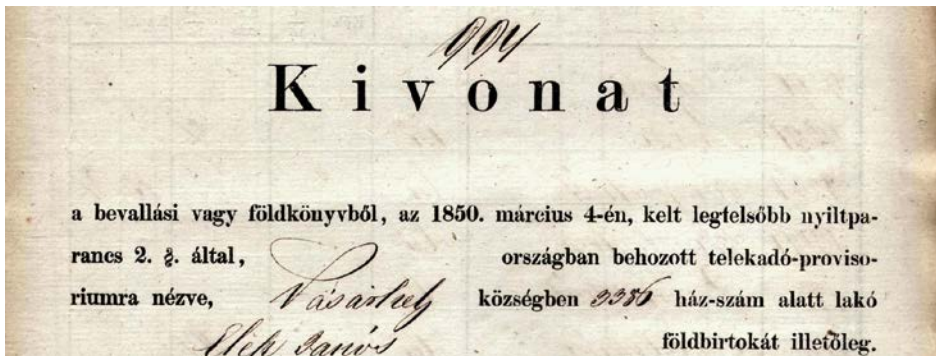 994
Kivonat
a bevallási vagy földkönyvből, az 1850. március 4-én, kelt legfelsőbb nyiltpa-
rancs 2. §. által, országban behozott telekadó-proviso-
riumra nézve, Vásárhely községben 3386 ház-szám alatt lakó
Elek János földbirtokát illetőleg.